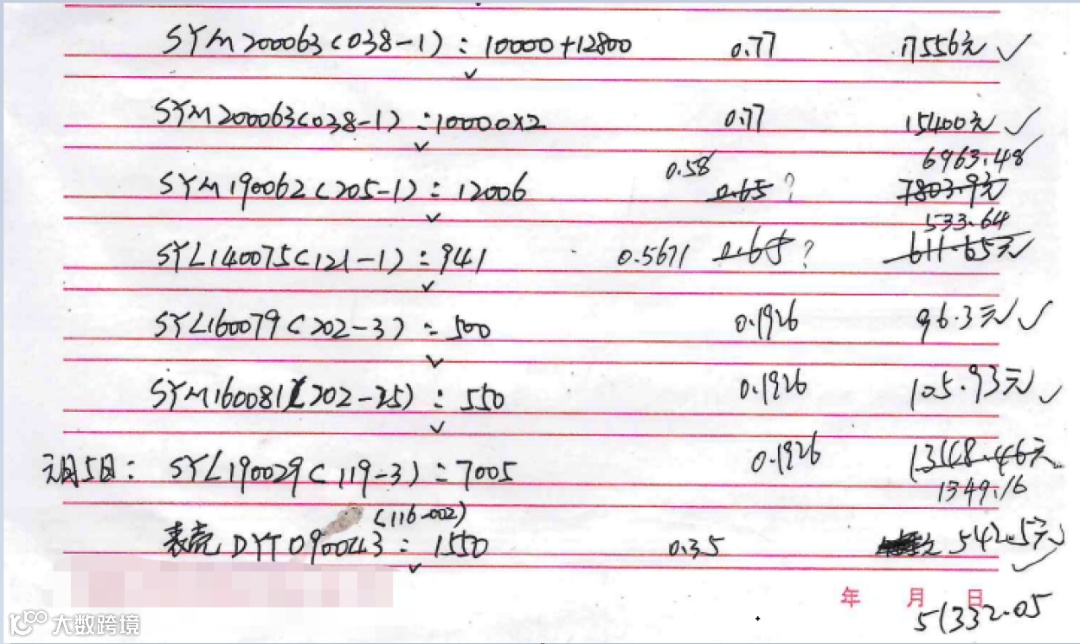 SYM200063(038-1):10000+12800 0.77 17556元 ✓
SYM200063(038-1):10000×2 0.77 15400元 ✓
0.58 6963.48
SYM190062(205-1):12006 0.65? 7803.9元
533.64
SYL140075(121-1):941 0.5671 0.65? 611.65元
SYL160079(202-3):500 0.1926 96.3元✓
SYM160081(202-25):550 0.1926 105.93元✓
元月5日:SYL190029(119-3):7005 0.1926
1349.16
(116-002)
表壳DYT0900243:1550 0.35 542.5元✓
年 月 日
51332.05
大数跨境